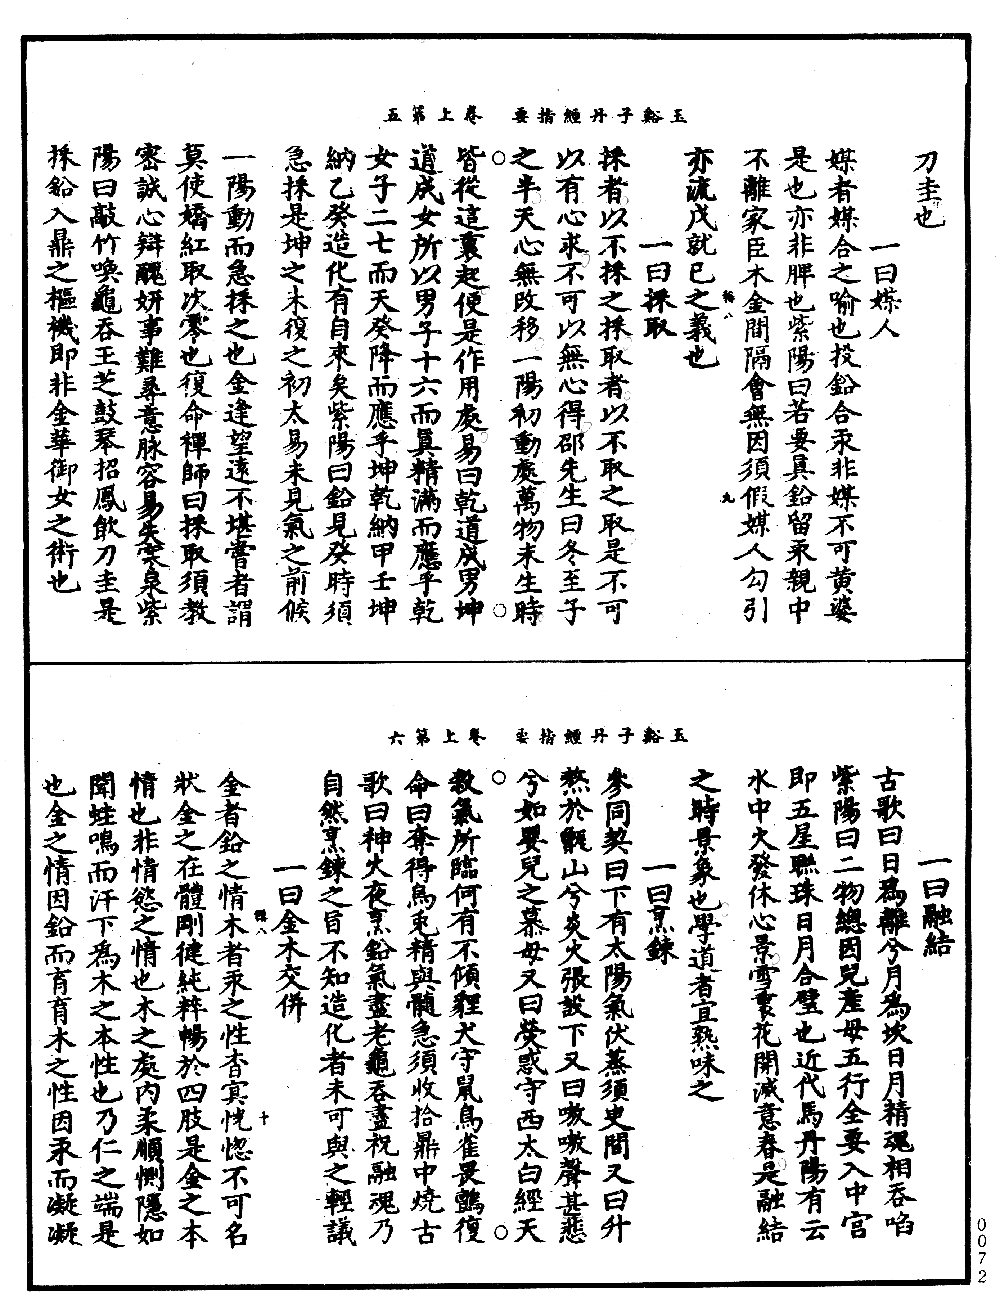 玉谿子丹經指要　卷上第五
刀圭也
一曰媒人
媒者媒合之喻也投鉛合汞非媒不可黄婆
是也亦非脾也紫陽曰若要真鉛留汞親中
不離家臣木金間隔會無因須假媒人勾引
亦流戊就已之義也
一曰採取
採者以不採之採取者以不取之取是不可
以有心求不可以無心得邵先生曰冬至子
之半天心無改移一陽初動處萬物未生時
皆從這裏起便是作用處易曰乾道成男坤
道成女所以男子十六而真精滿而應乎乾
女子二七而天癸降而應乎坤乾納甲壬坤
納乙癸造化有自來矣紫陽曰鉛見癸時須
急採是坤之未復之初太易未見氣之前候
一陽動而急採之也金逢望遠不堪嘗者謂
莫使嬌紅取次零也復命禪師曰採取須教
密誠心辯醜妍事難尋意脉容易失寞泉紫
陽曰敲竹喚龜吞玉芝鼓琴招鳳飲刀圭是
採鉛入鼎之樞機即非金華御女之術也
玉谿子丹經指要　卷上第六
一曰融結
古歌曰日爲離兮月爲坎日月精魂相吞啗
紫陽曰二物總因兒產母五行全要入中宮
即五星聯珠日月合璧也近代馬丹陽有云
水中火發休心景雪裏花開滅意春是融結
之時景象也學道者宜熟味之
一曰烹鍊
參同契曰下有太陽氣伏蒸須臾間又曰升
熬於甑山兮炎火張設下又曰嗷嗷聲甚悲
兮如嬰兒之慕母又曰熒惑守西太白經天
殺氣所臨何有不傾貍犬守鼠鳥雀畏鸇復
命曰奪得烏兎精與髓急須收拾鼎中燒古
歌曰神火夜烹鉛氣盡老龜吞盡祝融魂乃
自然烹鍊之旨不知造化者未可與之輕議
一曰金木交併
金者鉛之情木者汞之性杳冥恍惚不可名
狀金之在體剛健純粹暢於四肢是金之本
情也非情慾之情也木之處内柔順惻隱如
聞蛙鳴而汗下爲木之本性也乃仁之端是
也金之情因鉛而育育木之性因汞而凝凝
0072